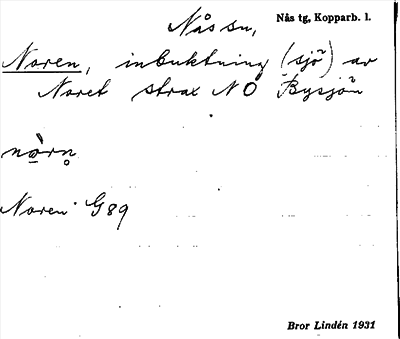 Nås sn, Nås tg, Kopparb. l.
Noren, inbuktning (sjö) av
Noret strax NO Bysjön
nò̱rn̥
Noren G 89
Bror Lindén 1931